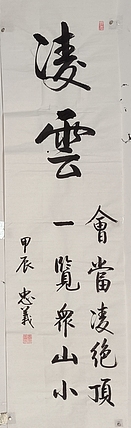 凌雲
會當凌絕頂
一覽衆山小
甲辰 忠義